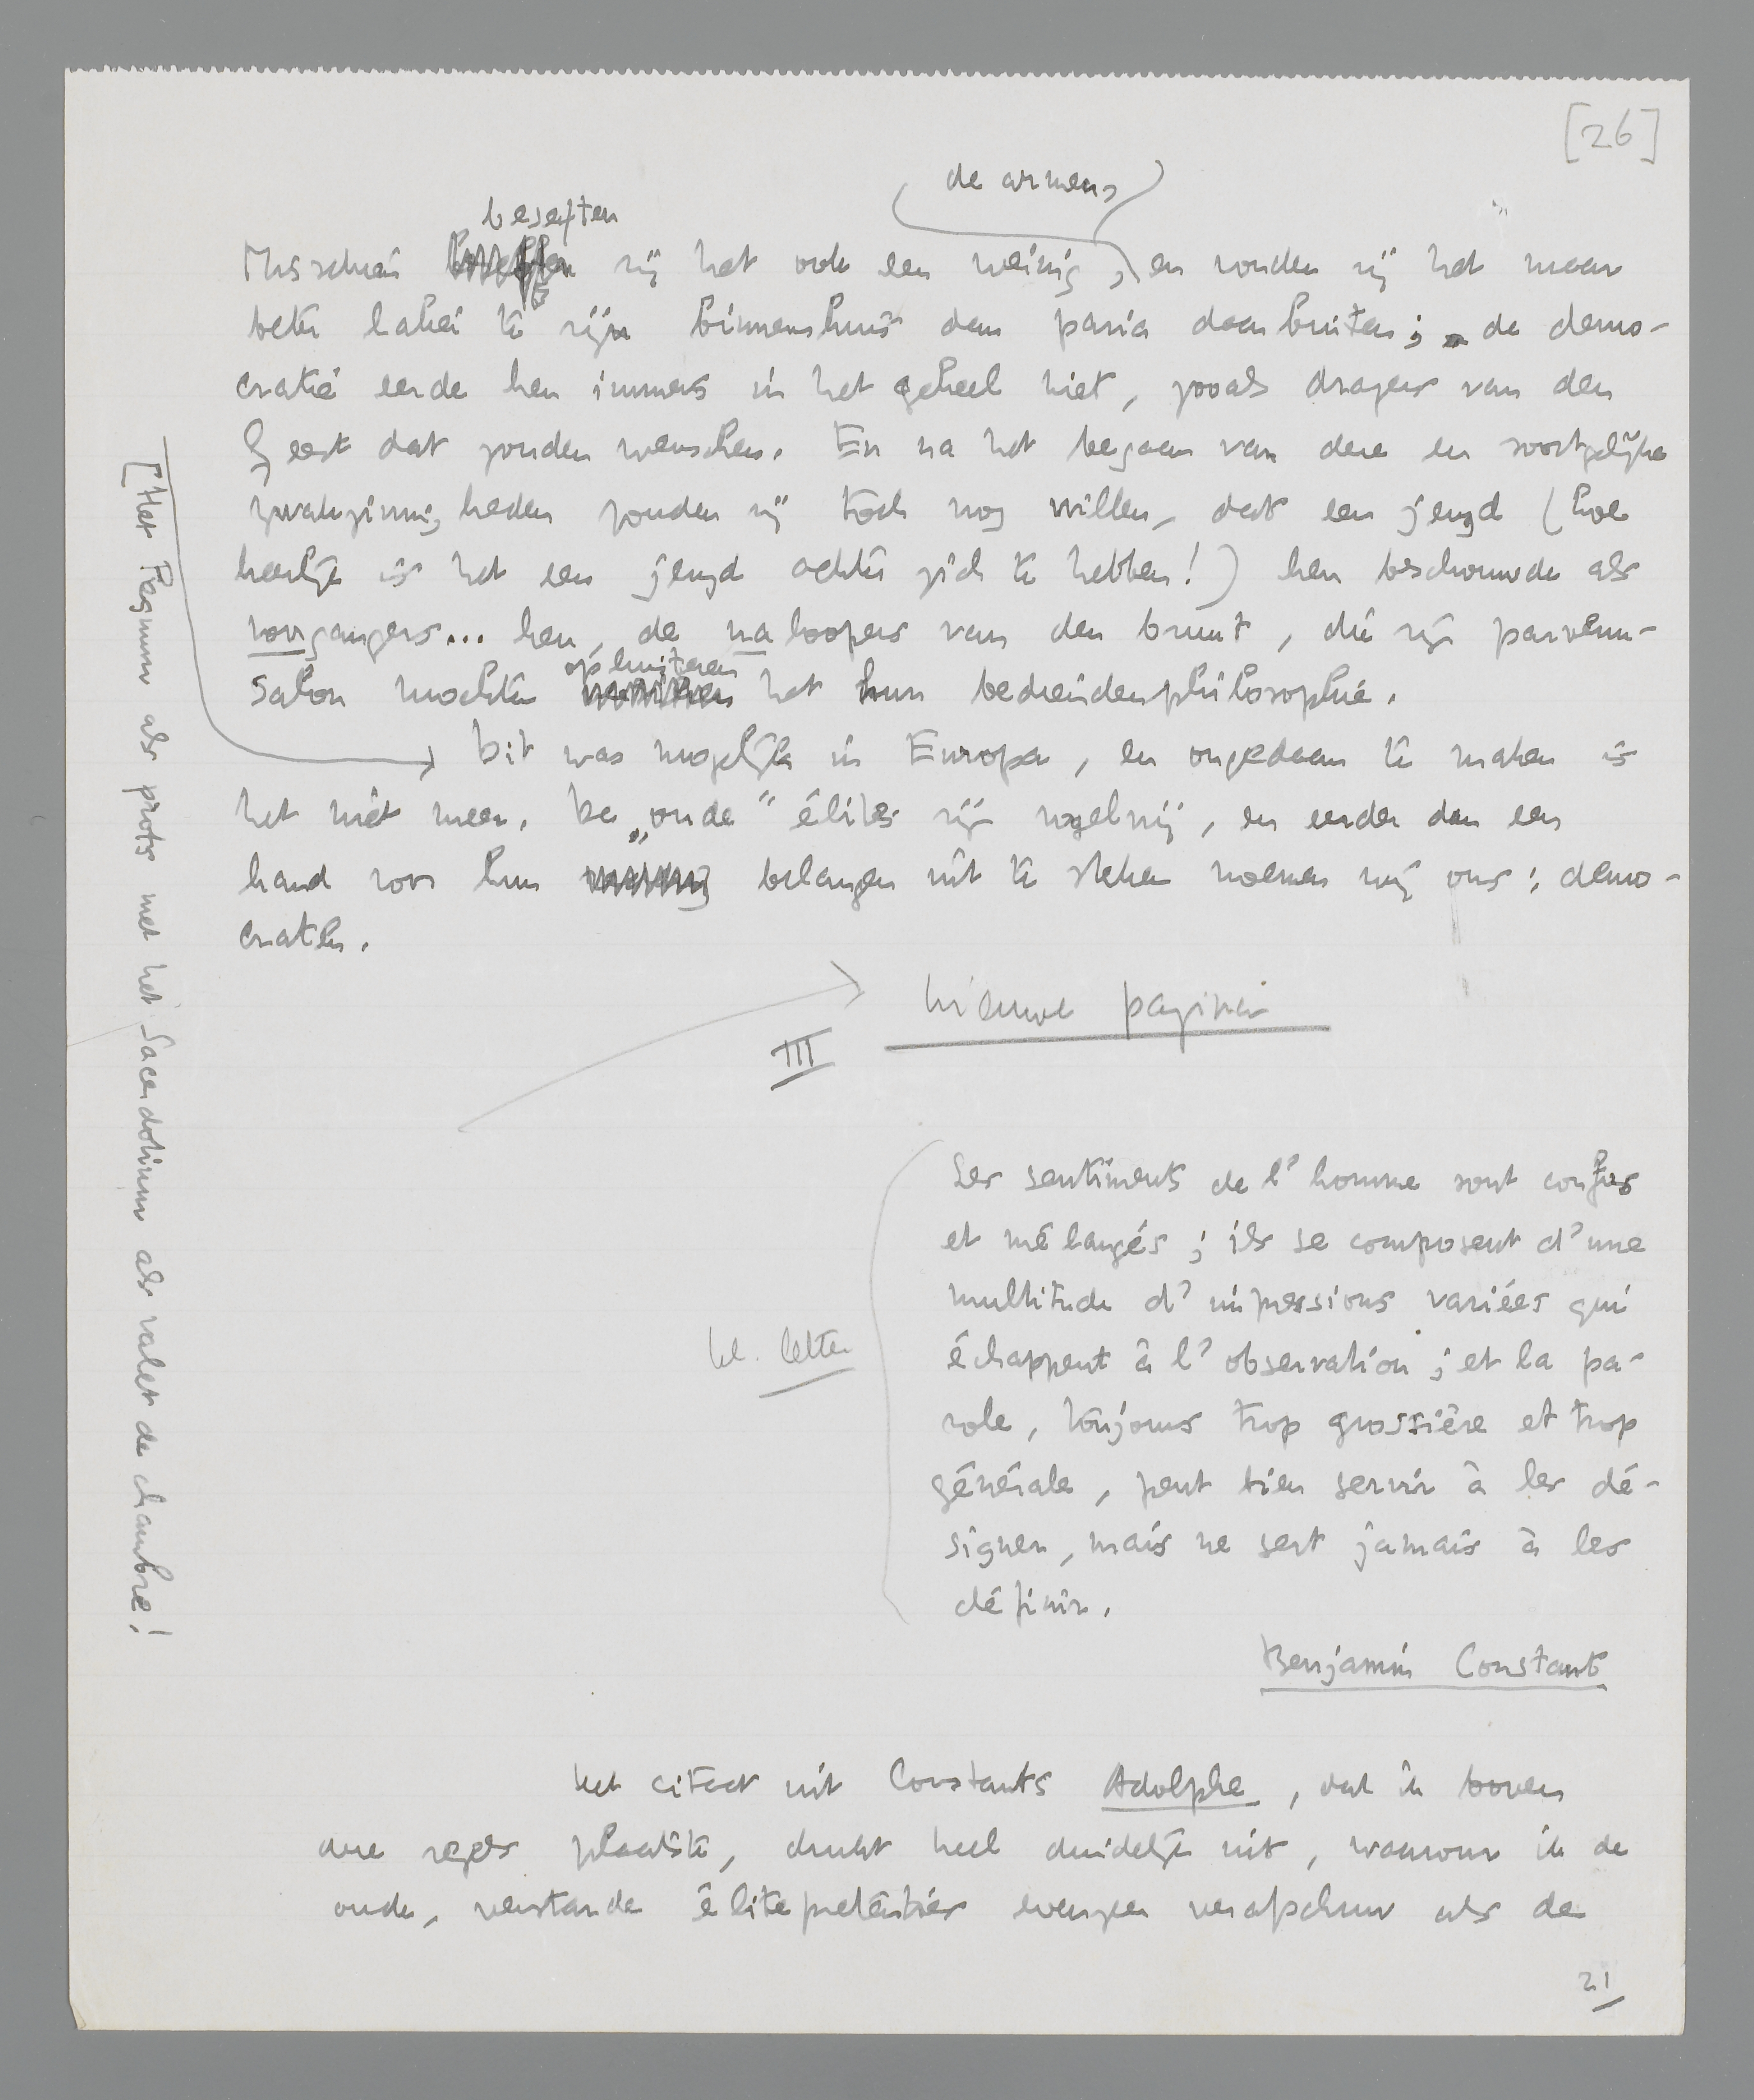 [26]
de armen,
beseften
Misschien zij het ook een weinig, en vonden zij het maar
beter lakei te zijn binnenshuis dan paria daarbuiten; de demo-
cratie eerde hen immers in het geheel niet, zooals dragers van den
Geest dat zouden wenschen. En na het begaan van deze en soortgelijke
zwakzinnigheden zouden zij toch nog willen, dat een jeugd (hoe
heerlijk is het een jeugd achter zich te hebben!) hen beschouwde als
voorgangers... hen, de naloopers van den bruut, die zijn parvenu-
opluisteren
salon mochten met hun bediendenphilosophie.
Dit was mogelijk in Europa, en ongedaan te maken is
het niet meer. De „oude” élites zijn vogelvrij, en eerder dan een
hand voor hun belangen uit te steken noemen wij ons: demo-
craten.
[Het Regnum als prots met het Sacerdotium als valet de chambre!
nieuwe pagina
III
Les sentiments de l'homme sont confus
et mélangés; ils se composent d'une
multitude d'impressions variées qui
kl. letter
échappent à l'observation; et la pa-
role, toujours trop grossière et trop
générale, peut bien servir à les dé-
signer, mais ne sert jamais à les
définir.
Benjamin Constant
Het citaat uit Constants Adolphe, dat ik boven
deze regels plaatste, drukt heel duidelijk uit, waarom ik de
oude, verstarde élitepretenties evenzeer verafschuw als de
21